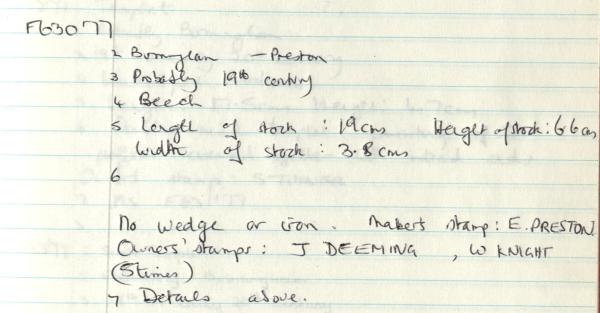 F63077
2 Burnglan - Preston
3 Probably 19th century
4 Beech
5 Length of stock : 19cms Height of stock : 6.6cms
Width of stock : 3.8cms
6
No wedge or iron. Maker's stamp : E. PRESTON.
Owners' stamps : J DEEMING , W KNIGHT
(5 times)
7 Details above.